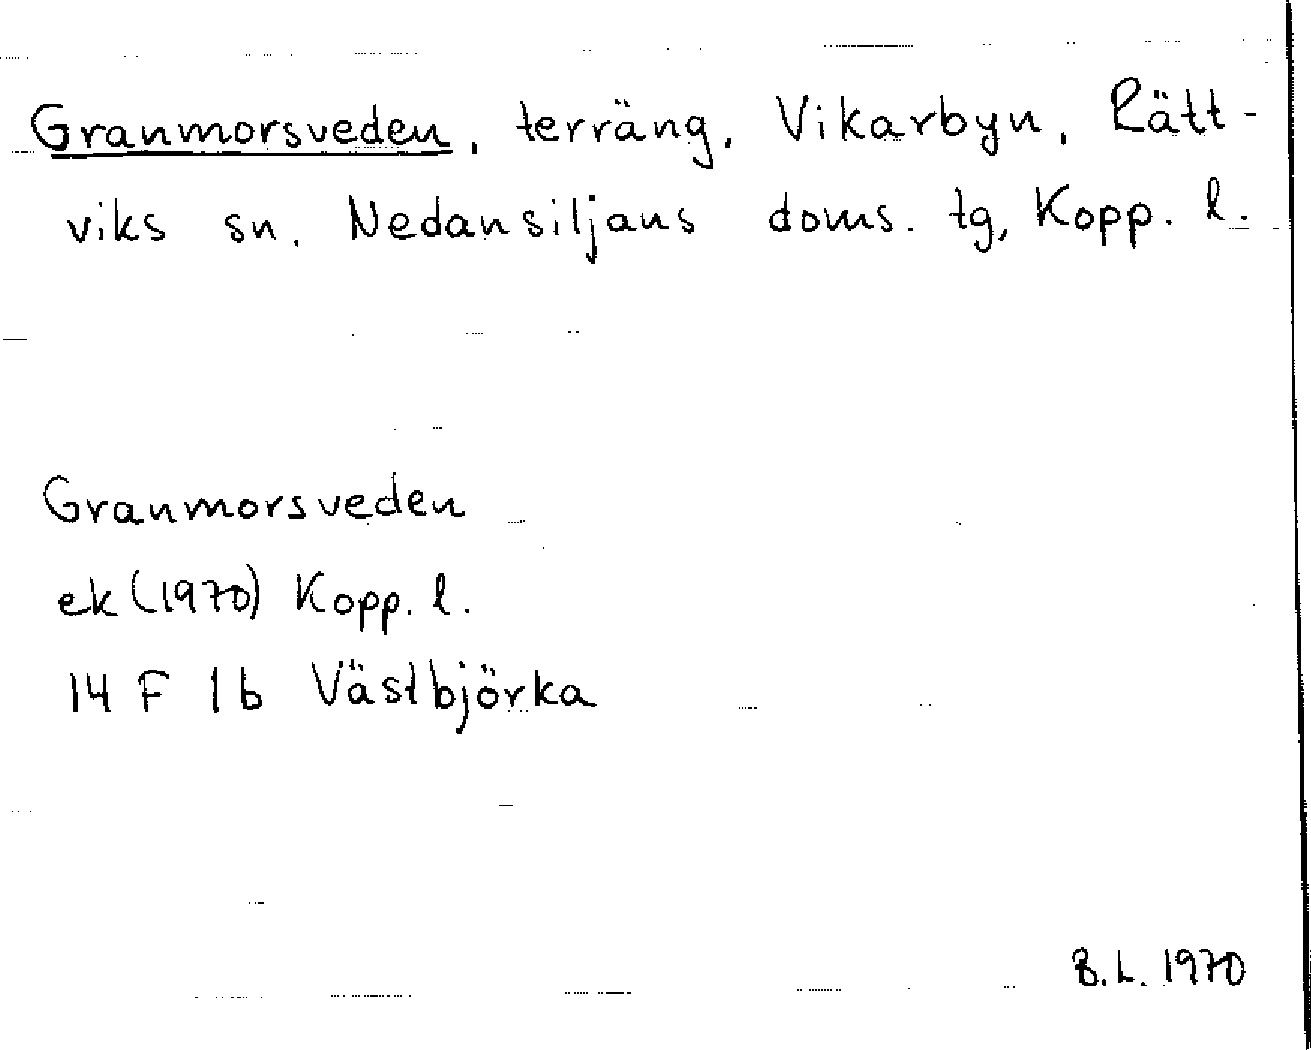 Granmorsveden, terräng, Vikarbyn, Rätt-
viks sn. Nedansiljans doms. tg, Kopp. l.
Granmorsveden
ek (1970) Kopp. l.
14 F 1b Västbjörka
B.L. 1970